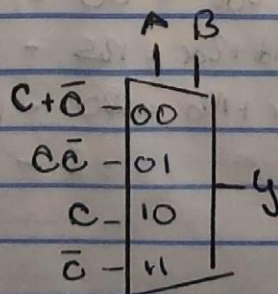 A B
C+C̄ 00
CC̄ 01
C 10
C̄ 11
y